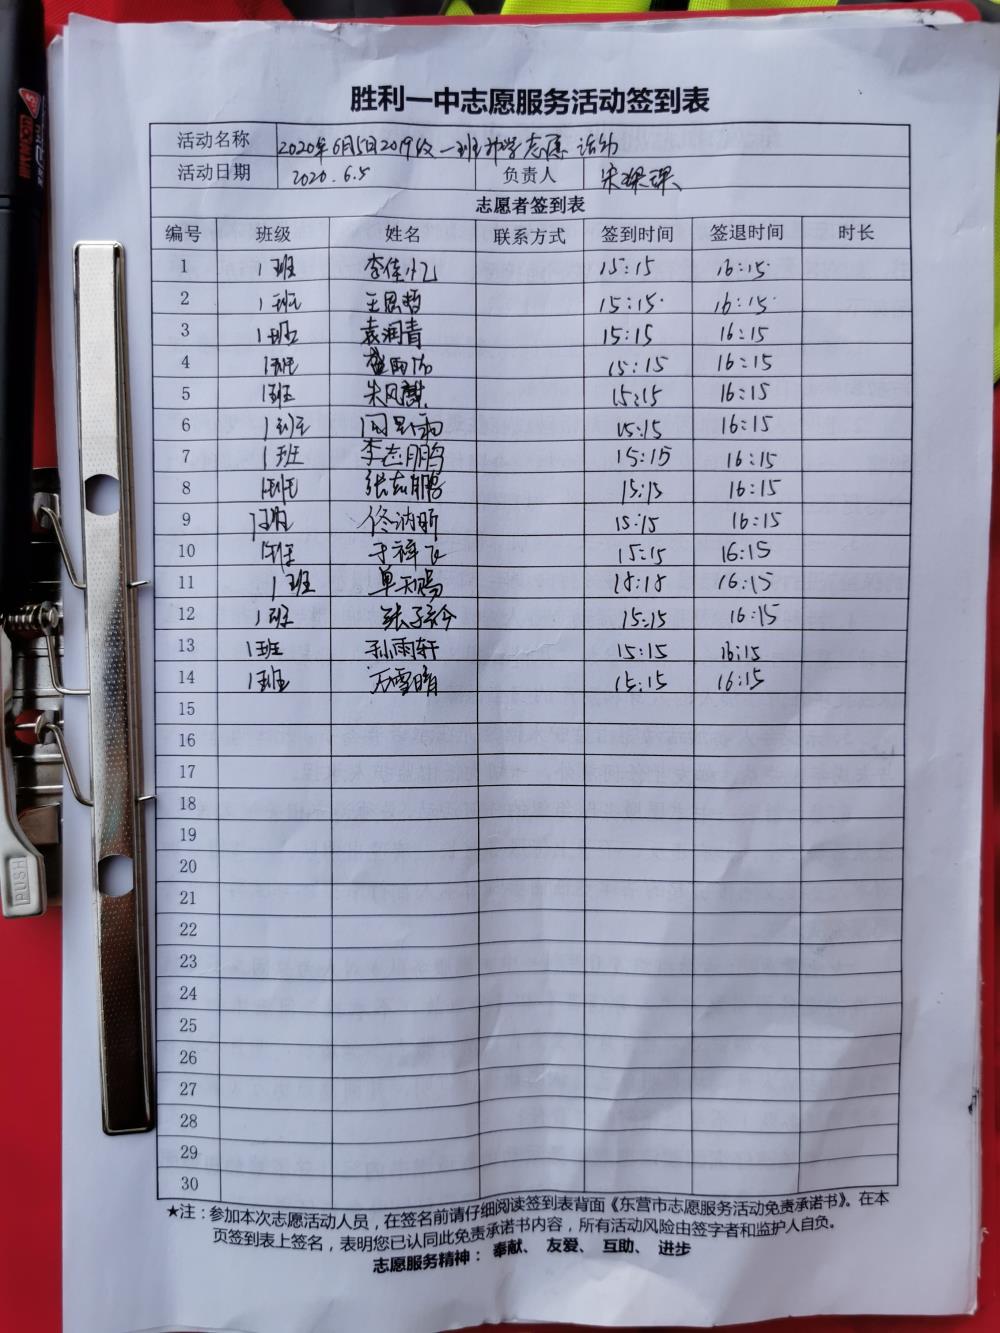 胜利一中志愿服务活动签到表
活动名称 2020年6月5日2019级一班 志愿活动
活动日期 2020.6.5 负责人 宋琛琛
志愿者签到表
编号 班级 姓名 联系方式 签到时间 签退时间 时长
1 1班 李佳忆 15:15 16:15
2 1班 王思哲 15:15 16:15
3 1班 袁润青 15:15 16:15
4 1班 15:15 16:15
5 1班 宋风麒 15:15 16:15
6 1班 15:15 16:15
7 1班 李志鹏 15:15 16:15
8 1班 张志鹏 15:15 16:15
9 1班 15:15 16:15
10 1班 于梓飞 15:15 16:15
11 1班 单天赐 15:15 16:15
12 1班 张子 15:15 16:15
13 1班 孙雨轩 15:15 16:15
14 1班 雪晴 15:15 16:15
15
16
17
18
19
20
21
22
23
24
25
26
27
28
29
30
★注：参加本次志愿活动人员，在签名前请仔细阅读签到表背面《东营市志愿服务活动免责承诺书》。在本
页签到表上签名，表明您已认同此免责承诺书内容，所有活动风险由签字者和监护人自负。
志愿服务精神： 奉献、 友爱、 互助、 进步
PUSH